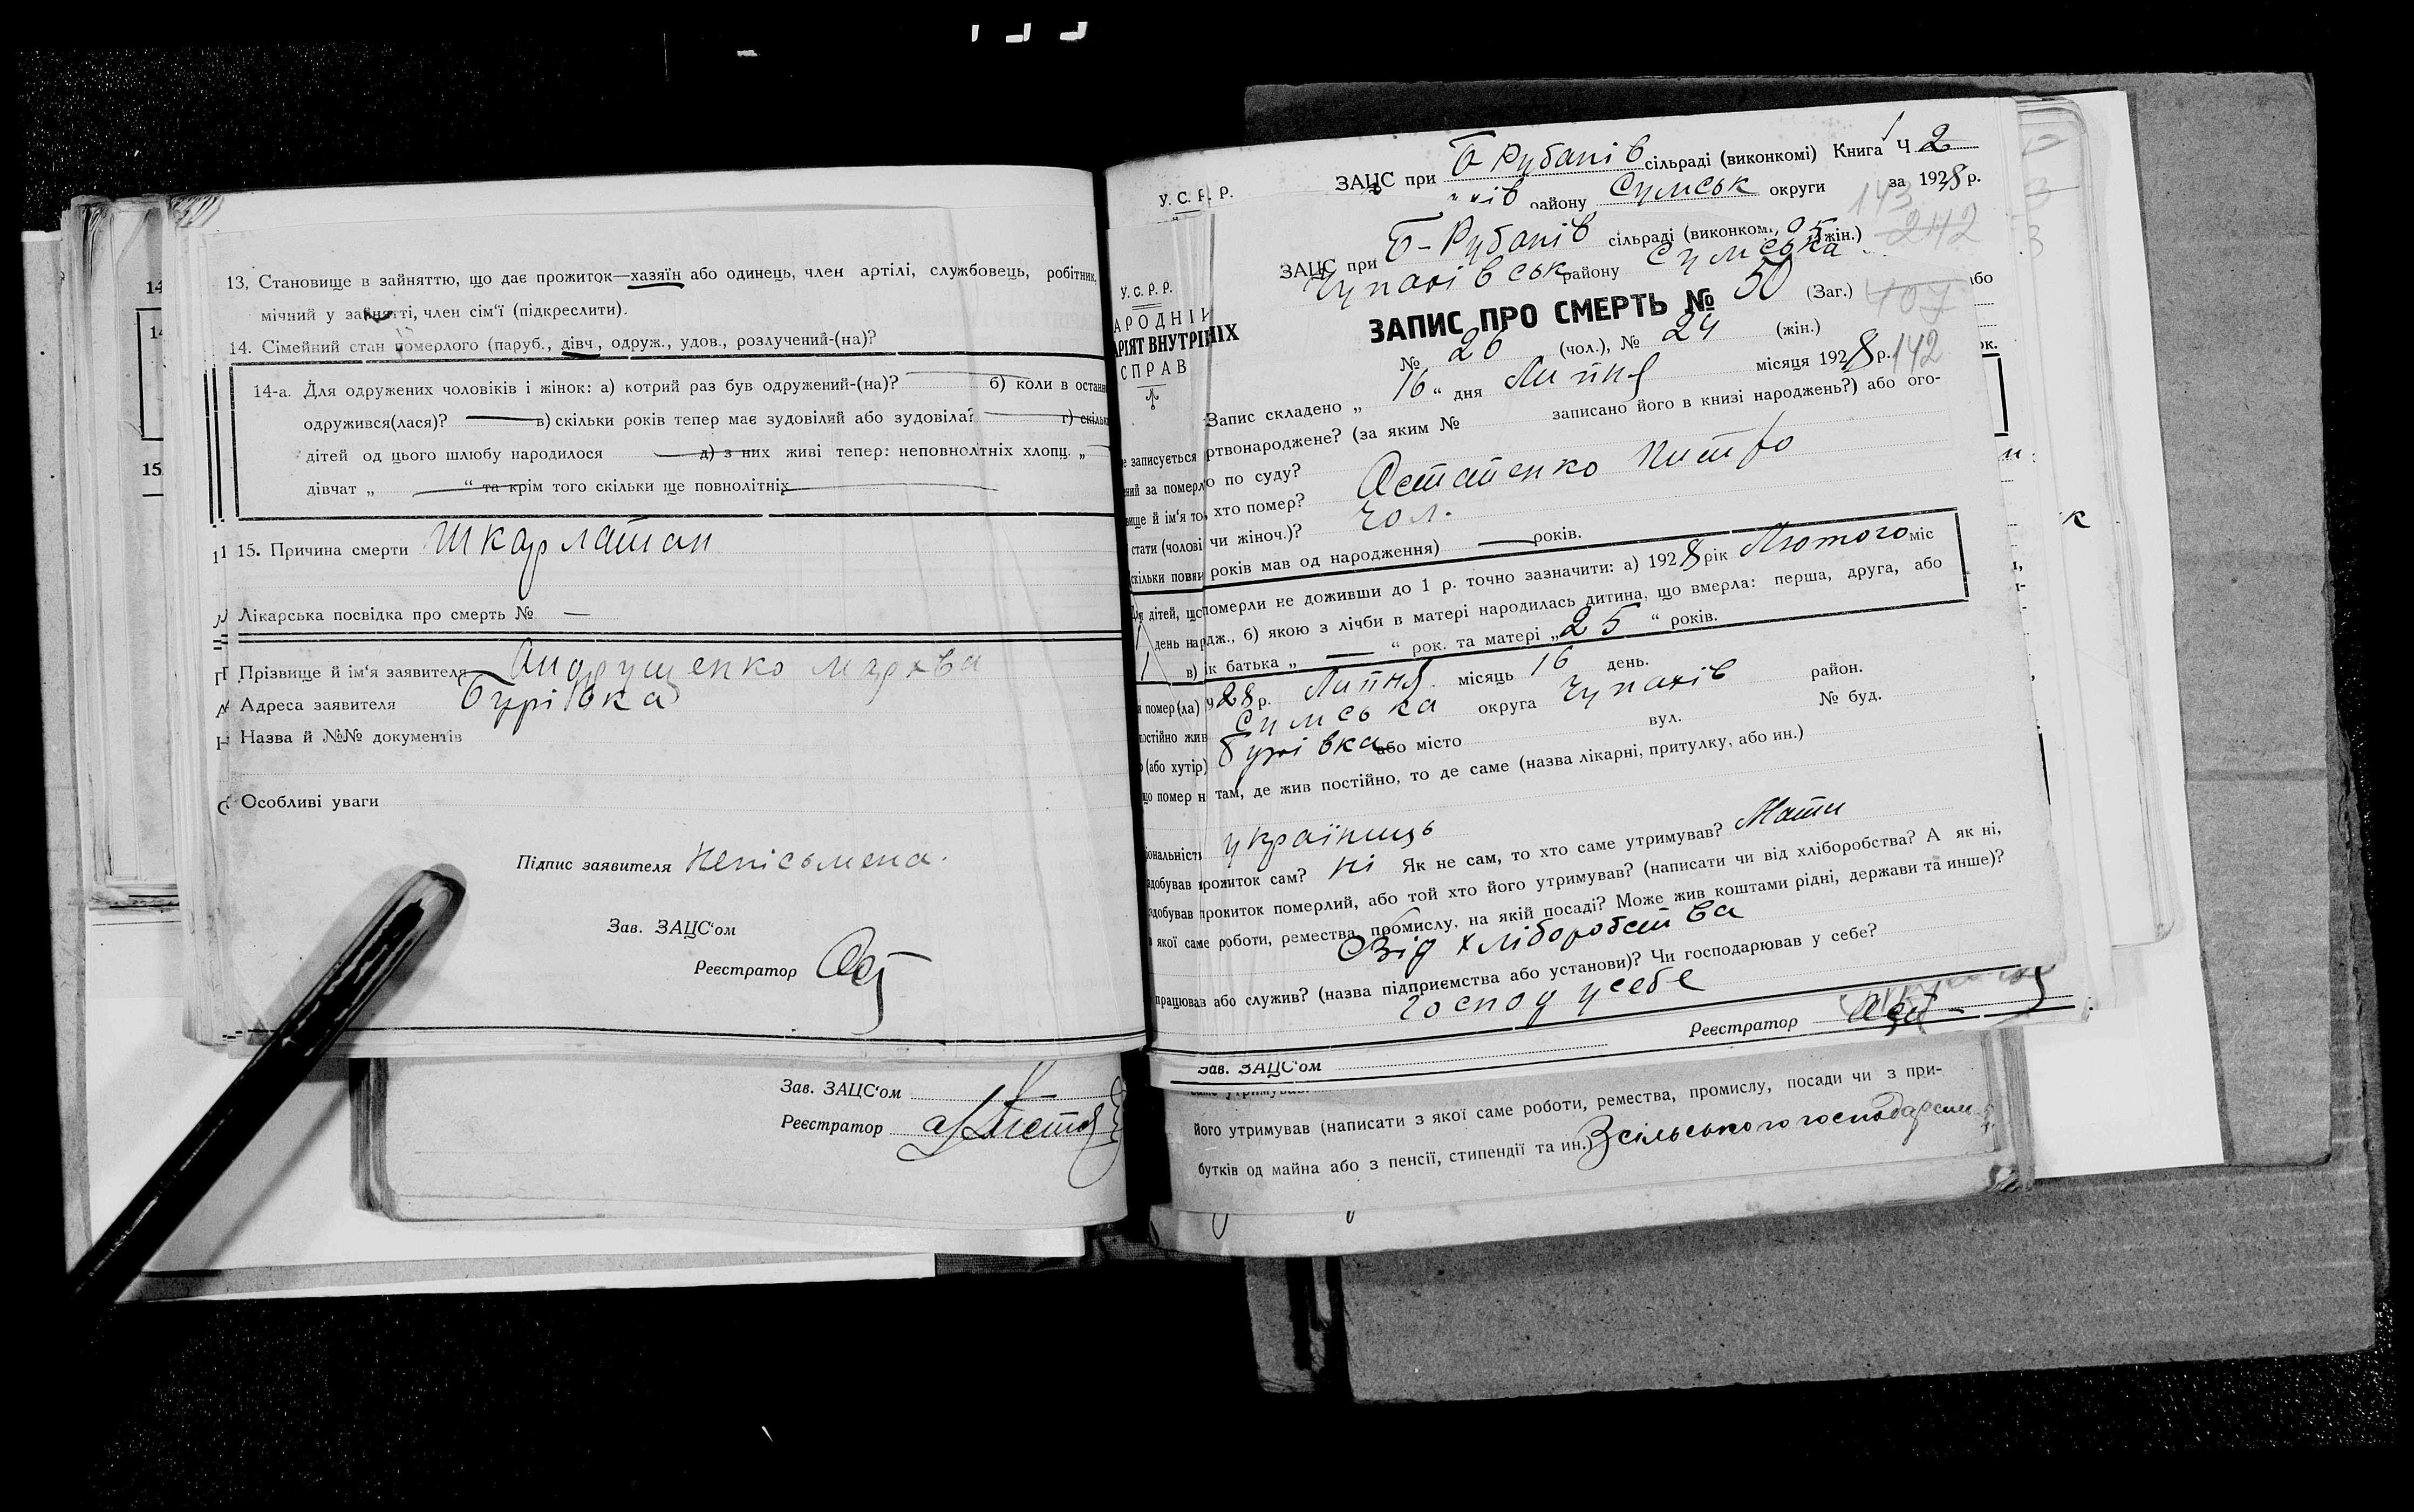 13. Становище в зайняттю, що дає прожиток—хазяїн або одинець, член артілі, службовець, робітник,
мічний у зайнятті, член сім'ї (підкреслити).
14. Сімейний стан померлого (паруб., дівч., одруж., удов., розлучений-(на)?
14-а. Для одружених чоловіків і жінок: а) котрий раз був одружений-(на)? б) коли в останн
одружився(лася)? в) скільки років тепер має зудовілий або зудовіла? г) скільк
дітей од цього шлюбу народилося д) з них живі тепер: неповнолітніх хлопц. „
дівчат „ “ та крім того скільки ще повнолітніх
15. Причина смерти Шкарлатан
Лікарська посвідка про смерть № —
Прізвище й ім'я заявителя Андрущенко Мархва
Адреса заявителя Бурівка
Назва й №№ документів
Особливі уваги
Підпис заявителя Неписьмена.
Зав. ЗАЦС'ом
Реєстратор
Зав. ЗАЦС'ом
Реєстратор
У. С. Р. Р. ЗАЦС при Б Рубанів сільраді (виконкомі) Книга Ч 2
хів району Сумськ округи за 1928 р.
143
ЗАЦС при Б-Рубанів сільраді (виконком., 25 (жін.) 242
Чупахівськ району Сумська
У. С. Р. Р.
АРОДНІЙ
АРІЯТ ВНУТРІШНІХ
СПРАВ
ЗАПИС ПРО СМЕРТЬ № 50 (Заг.) 407 або
№ 26 (чол.), № 24 (жін.)
Запис складено „ 16 “ дня Липня місяця 1928 р. 142
е записується ртвонароджене? (за яким № записано його в книзі народжень?) або ого-
ний за померло по суду?
вище й ім'я то, хто помер? Остапенко Питро
стати (чолові чи жіноч.)? Чол.
скільки повни років мав од народження) — років.
Для дітей, що померли не доживши до 1 р. точно зазначити: а) 1928 рік Лютого міс
день нардж., б) якою з лічби в матері народилась дитина, що вмерла: перша, друга, або
в) ік батька „ — “ рок. та матері „ 25 “ років.
и помер (ла) 1928 р. Липня місяць 16 день.
постійно жив Сумська округа Чупахів район.
о (або хутір) Бурівка або місто вул. № буд.
що помер н там, де жив постійно, то де саме (назва лікарні, притулку, або ин.)
іональність українць
здобував прожиток сам? Ні Як не сам, то хто саме утримував? Мати
здобував прожиток померлий, або той хто його утримував? (написати чи від хліборобства? А як ні,
з якої саме роботи, ремества, промислу, на якій посаді? Може жив коштами рідні, держави та инше)?
Від хліборобства
працював або служив? (назва підприємства або установи)? Чи господарював у себе?
Господ у себе
Реєстратор
Зав. ЗАЦС'ом
саме утримував.
його утримував (написати з якої саме роботи, ремества, промислу, посади чи з при-
бутків од майна або з пенсії, стипендії та ин.) З сільського господарств